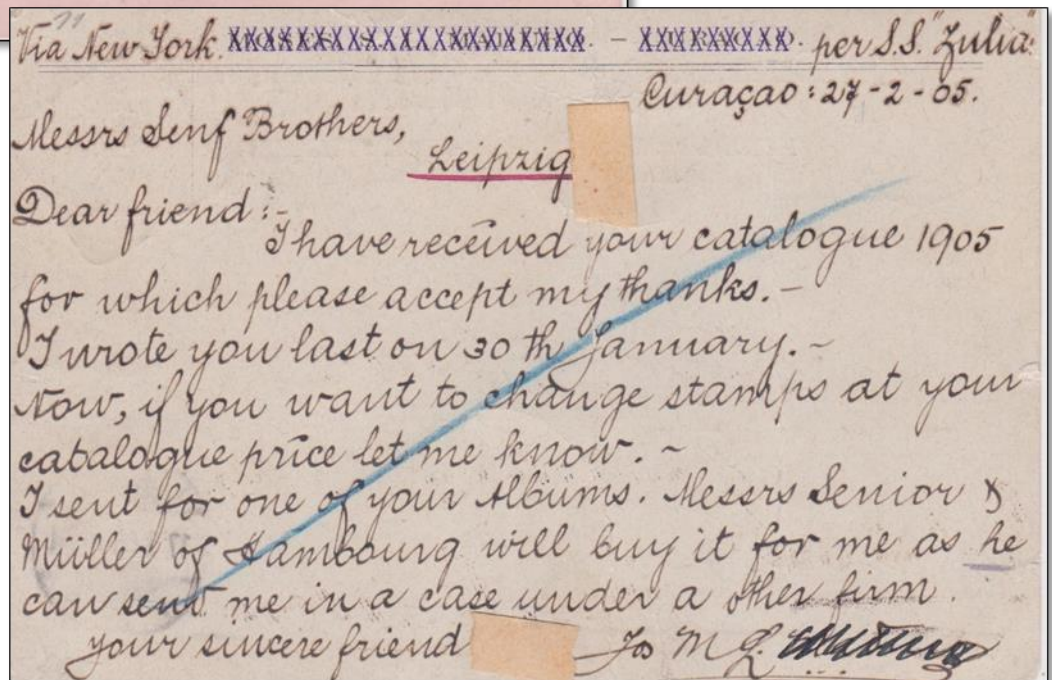 Via New York. per S.S. "Zulia"
Curaçao: 27-2-05.
Messrs Senf Brothers,
Leipzig
Dear friend:-
I have received your catalogue 1905
for which please accept my thanks. -
I wrote you last on 30 th January. -
Now, if you want to change stamps at your
catalogue price let me know. ~
I sent for one of your Albums. Messrs Senior &
Müller of Hambourg will buy it for me as he
can send me in a case under a other firm.
your sincere friend Jos M L.